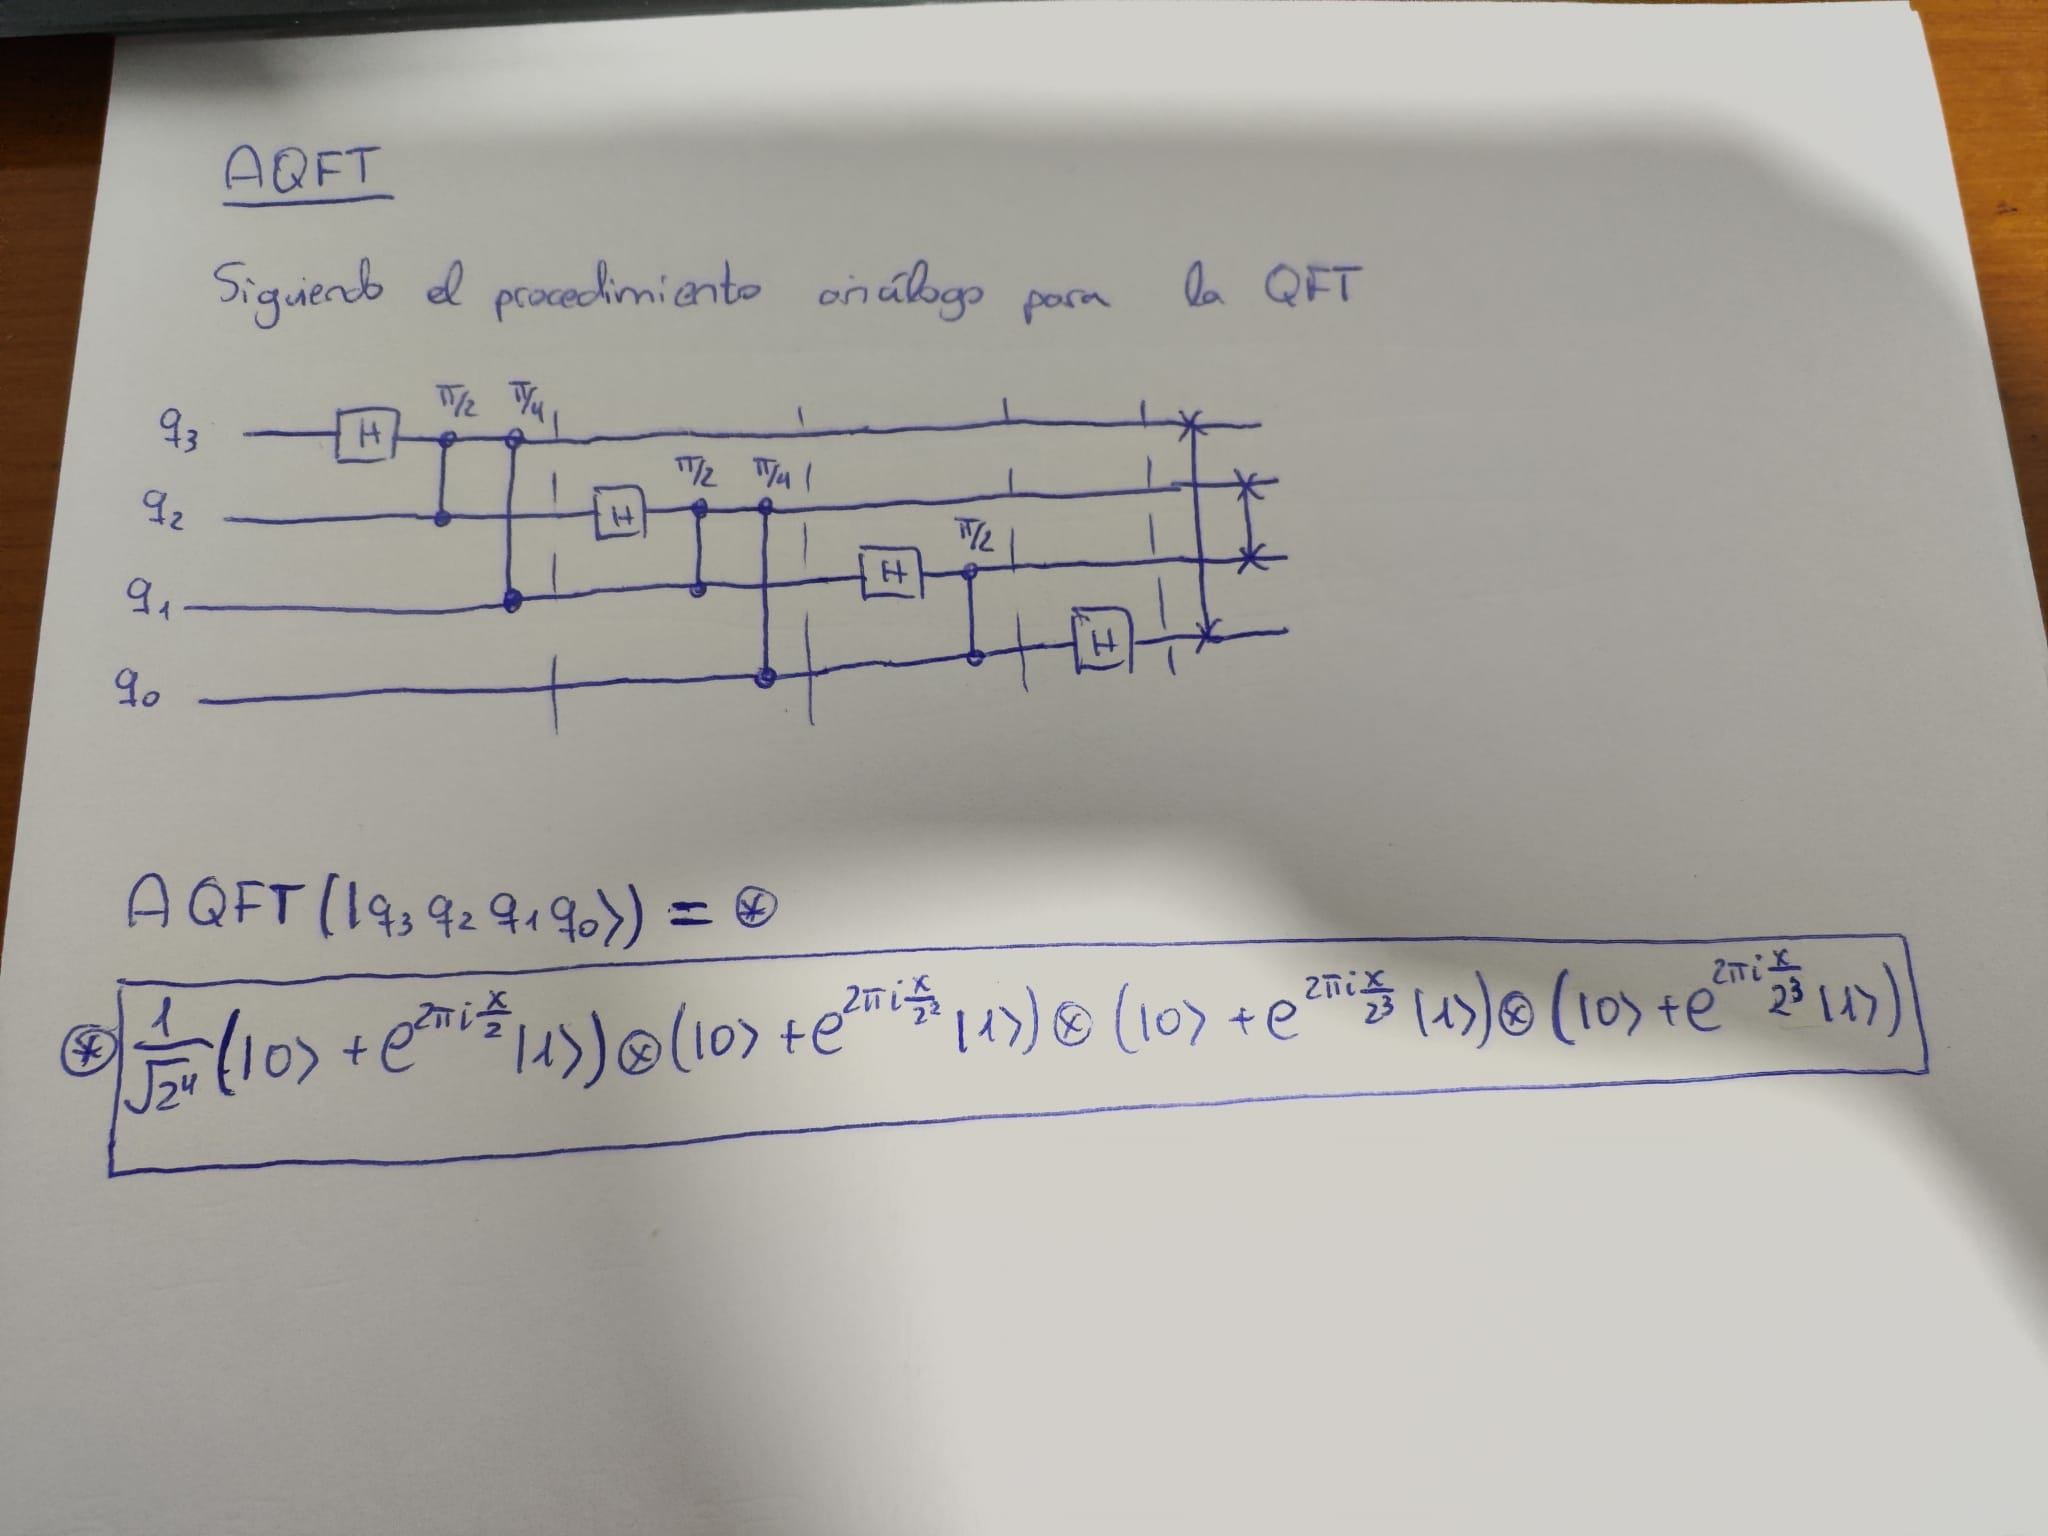 AQFT
Siguiendo el procedimiento análogo para la QFT
π/2 π/4
q₃ H
π/2 π/4
q₂ H
π/2
q₁ H
q₀ H
AQFT(|q₃ q₂ q₁ q₀⟩) = ⊛
⊛ 1/√2⁴ (|0⟩ + e^{2πi x/2} |1⟩) ⊗ (|0⟩ + e^{2πi x/2²} |1⟩) ⊗ (|0⟩ + e^{2πi x/2³} |1⟩) ⊗ (|0⟩ + e^{2πi x/2³} |1⟩)